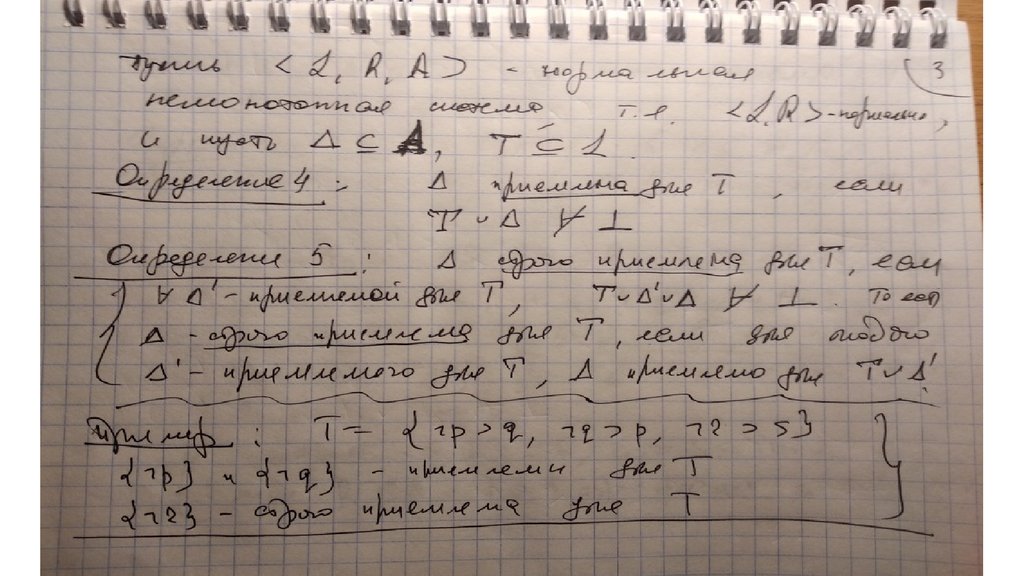 3
Пусть < L, R, A > - нормальная
немонотонная система т.е. <L,R>-нормальна,
и пусть Δ ⊆ A, T ⊆ L.
Определение 4: Δ приемлема для T, если
T ∪ Δ ⊬ ⊥
Определение 5: Δ строго приемлема для T, если
∀ Δ' - приемлемой для T, T∪Δ'∪Δ ⊬ ⊥. То есть
Δ - строго приемлема для T, если для любого
Δ' - приемлемого для T, Δ приемлемо для T∪Δ'.
Пример: T = {¬p > q, ¬q > p, ¬r > s}
{¬p} и {¬q} - приемлемы для T
{¬r} - строго приемлема для T